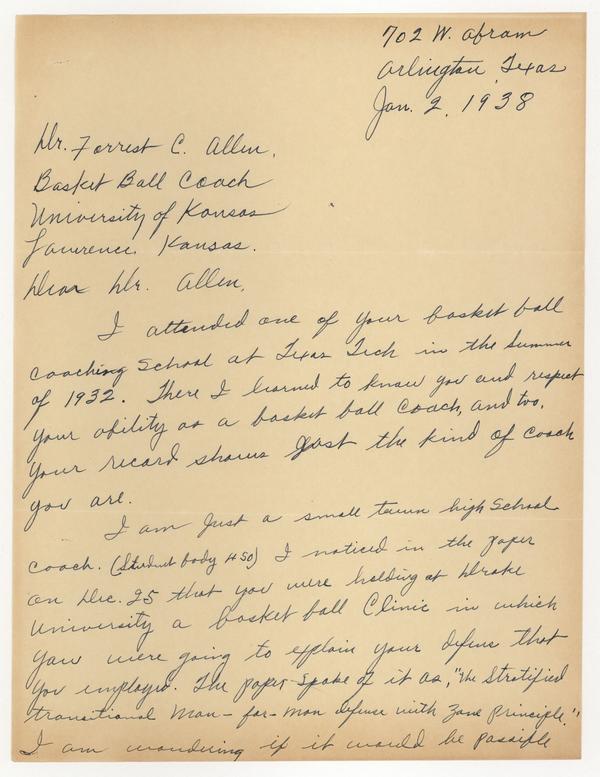 702 W. Abram
Arlington, Texas
Jan. 2, 1938
Dr. Forrest C. Allen,
Basket Ball Coach
University of Kansas
Lawrence, Kansas.
Dear Dr. Allen,
I attended one of your basket ball
coaching School at Texas Tech in the Summer
of 1932. There I learned to know you and respect
your ability as a basket ball coach, and too,
your record shows just the kind of coach
you are.
I am just a small town high School
coach. (Student body 450) I noticed in the paper
on Dec. 25 that you were holding at Drake
University a basket ball Clinic in which
you were going to explain your defens that
you employed. The paper spoke of it as, "The Stratified
transitional Man-for-man defense with Zone Principle."
I am wondering if it would be possible